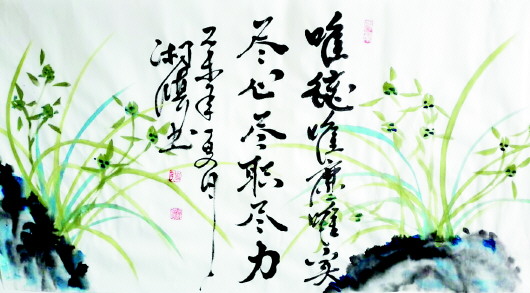 唯德唯廉唯实
尽心尽职尽力
乙未年夏月
湘淇书